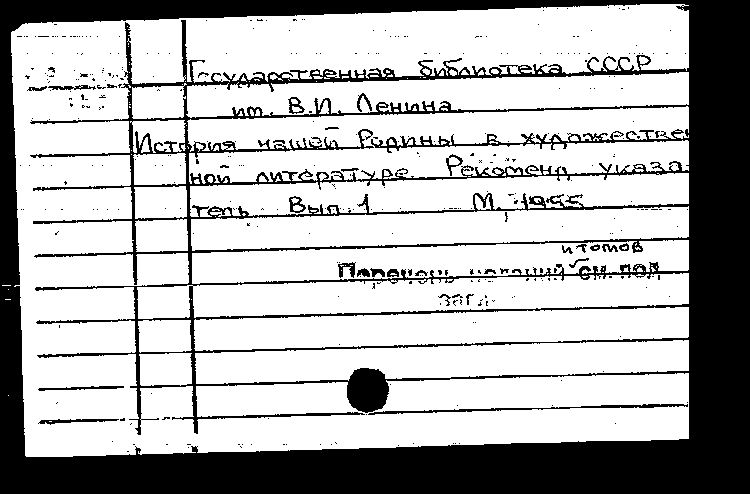 Государственная библиотека СССР
им. В.И. Ленина.
История нашей Родины в художествен
ной литературе. Рекоменд. указа-
тель Вып. 1 М., 1955
и томов
Перечень изданий см. под
загл.